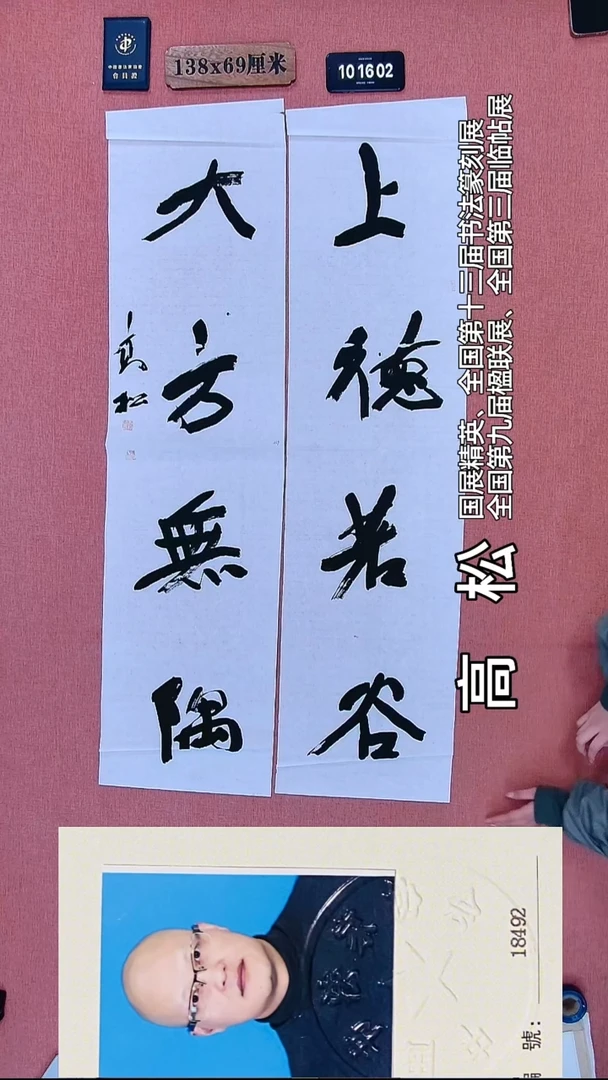 中国书法家协会
會員證
138x69厘米
10 16 02
上德若谷
大方無隅
高松
国展精英、全国第十三届书法篆刻展
全国第九届楹联展、全国第三届临帖展
高 松
號：
18492